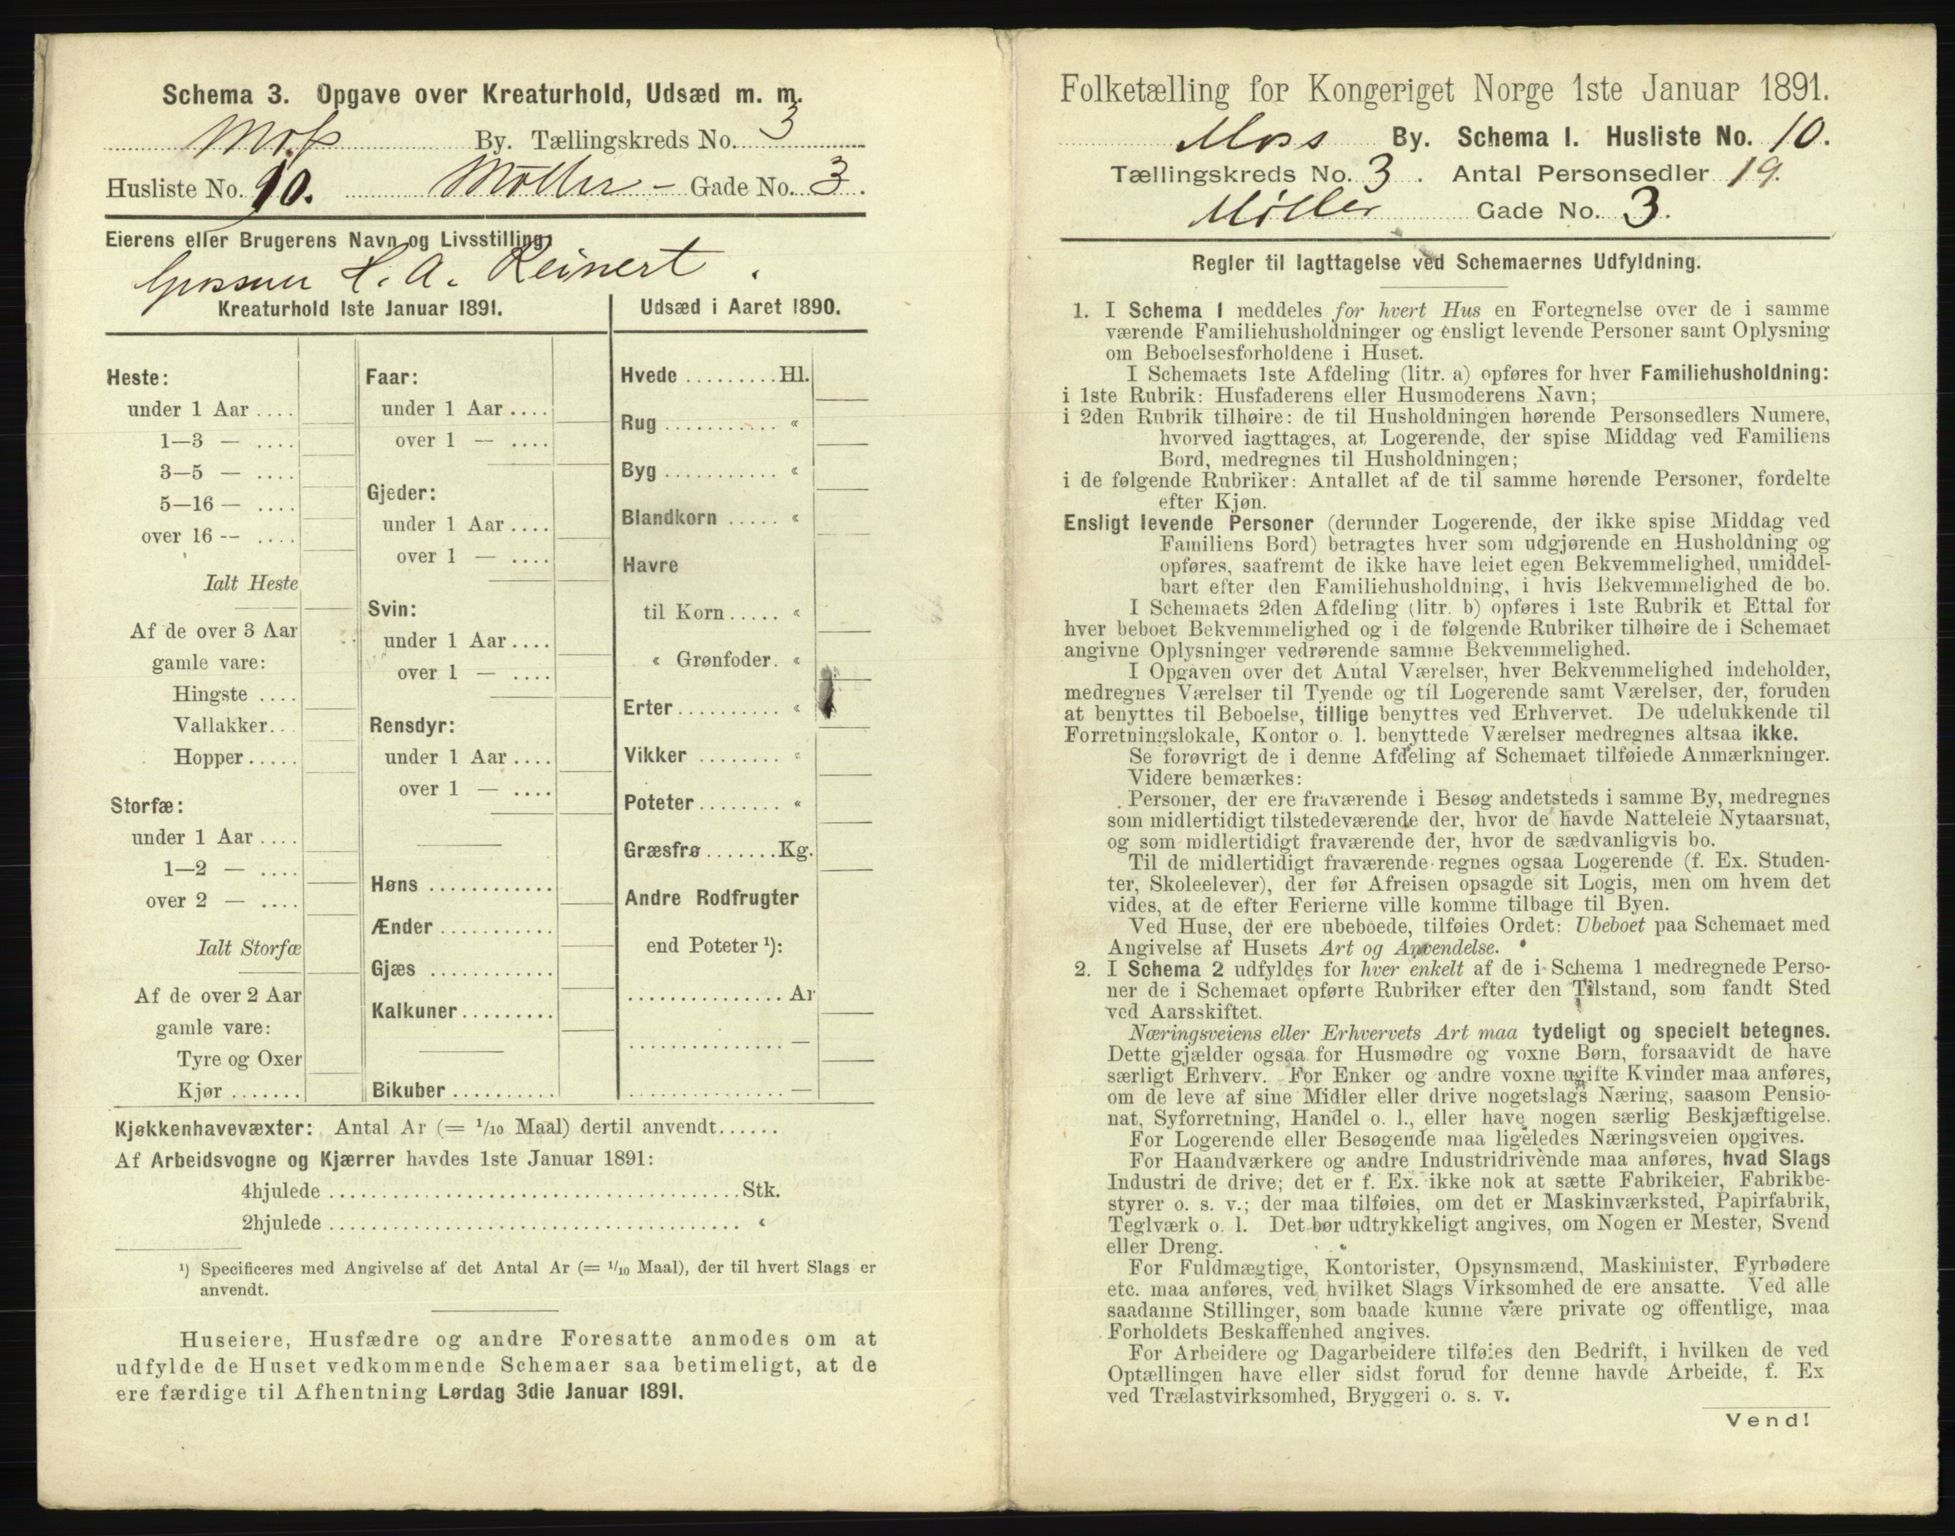 Schema 3. Opgave over Kreaturhold, Udsæd m. m.
Moss By. Tællingskreds No. 3
Husliste No. 10. Möller - Gade No. 3.
Eierens eller Brugerens Navn og Livsstilling:
H. A. Reinert.
Kreaturhold 1ste Januar 1891.
Heste:
under 1 Aar ....
1—3 — ....
3—5 — ....
5—16 — ....
over 16 — ....
Ialt Heste
Af de over 3 Aar
gamle vare:
Hingste ....
Vallakker...
Hopper.....
Storfæ:
under 1 Aar ....
1—2 — ....
over 2 — ....
Ialt Storfæ
Af de over 2 Aar
gamle vare:
Tyre og Oxer
Kjør .......
Faar:
under 1 Aar ....
over 1 — ....
Gjeder:
under 1 Aar ....
over 1 — ....
Svin:
under 1 Aar ....
over 1 — ....
Rensdyr:
under 1 Aar ....
over 1 — ....
Høns ............
Ænder ...........
Gjæs ............
Kalkuner.........
Bikuber..........
Udsæd i Aaret 1890.
Hvede .........Hl.
Rug ........... «
Byg ........... «
Blandkorn ..... «
Havre
til Korn ..... «
« Grønfoder. «
Erter.......... «
Vikker ........ «
Poteter........ «
Græsfrø .......Kg.
Andre Rodfrugter
end Poteter ¹):
............... Ar
............... —
............... —
Kjøkkenhavevæxter: Antal Ar (= 1/10 Maal) dertil anvendt......
Af Arbeidsvogne og Kjærrer havdes 1ste Januar 1891:
4hjulede ........................................Stk.
2hjulede ........................................ «
¹) Specificeres med Angivelse af det Antal Ar (= 1/10 Maal), der til hvert Slags er
anvendt.
Huseiere, Husfædre og andre Foresatte anmodes om at
udfylde de Huset vedkommende Schemaer saa betimeligt, at de
ere færdige til Afhentning Lørdag 3die Januar 1891.
Folketælling for Kongeriget Norge 1ste Januar 1891.
Moss By. Schema I. Husliste No. 10.
Tællingskreds No. 3. Antal Personsedler 19.
Møller Gade No. 3.
Regler til Iagttagelse ved Schemaernes Udfyldning.
1. I Schema 1 meddeles for hvert Hus en Fortegnelse over de i samme
værende Familiehusholdninger og ensligt levende Personer samt Oplysning
om Beboelsesforholdene i Huset.
I Schemaets 1ste Afdeling (litr. a) opføres for hver Familiehusholdning:
i 1ste Rubrik: Husfaderens eller Husmoderens Navn;
i 2den Rubrik tilhøire: de til Husholdningen hørende Personsedlers Numere,
hvorved iagttages, at Logerende, der spise Middag ved Familiens
Bord, medregnes til Husholdningen;
i de følgende Rubriker: Antallet af de til samme hørende Personer, fordelte
efter Kjøn.
Ensligt levende Personer (derunder Logerende, der ikke spise Middag ved
Familiens Bord) betragtes hver som udgjørende en Husholdning og
opføres, saafremt de ikke have leiet egen Bekvemmelighed, umiddel-
bart efter den Familiehusholdning, i hvis Bekvemmelighed de bo.
I Schemaets 2den Afdeling (litr. b) opføres i 1ste Rubrik et Ettal for
hver beboet Bekvemmelighed og i de følgende Rubriker tilhøire de i Schemaet
angivne Oplysninger vedrørende samme Bekvemmelighed.
I Opgaven over det Antal Værelser, hver Bekvemmelighed indeholder,
medregnes Værelser til Tyende og til Logerende samt Værelser, der, foruden
at benyttes til Beboelse, tillige benyttes ved Erhvervet. De udelukkende til
Forretningslokale, Kontor o. l. benyttede Værelser medregnes altsaa ikke.
Se forøvrigt de i denne Afdeling af Schemaet tilføiede Anmærkninger.
Videre bemærkes:
Personer, der ere fraværende i Besøg andetsteds i samme By, medregnes
som midlertidigt tilstedeværende der, hvor de havde Natteleie Nytaarsnat,
og som midlertidigt fraværende der, hvor de sædvanligvis bo.
Til de midlertidigt fraværende regnes ogsaa Logerende (f. Ex. Studen-
ter, Skoleelever), der før Afreisen opsagde sit Logis, men om hvem det
vides, at de efter Ferierne ville komme tilbage til Byen.
Ved Huse, der ere ubeboede, tilføies Ordet: Ubeboet paa Schemaet med
Angivelse af Husets Art og Anvendelse.
2. I Schema 2 udfyldes for hver enkelt af de i Schema 1 medregnede Perso-
ner de i Schemaet opførte Rubriker efter den Tilstand, som fandt Sted
ved Aarsskiftet.
Næringsveiens eller Erhvervets Art maa tydeligt og specielt betegnes.
Dette gjælder ogsaa for Husmødre og voxne Børn, forsaavidt de have
særligt Erhverv. For Enker og andre voxne ugifte Kvinder maa anføres,
om de leve af sine Midler eller drive nogetslags Næring, saasom Pensio-
nat, Syforretning, Handel o. l., eller have nogen særlig Beskjæftigelse.
For Logerende eller Besøgende maa ligeledes Næringsveien opgives.
For Haandværkere og andre Industridrivende maa anføres, hvad Slags
Industri de drive; det er f. Ex. ikke nok at sætte Fabrikeier, Fabrikbe-
styrer o. s. v.; der maa tilføies, om det er Maskinværksted, Papirfabrik,
Teglværk o. l. Det bør udtrykkeligt angives, om Nogen er Mester, Svend
eller Dreng.
For Fuldmægtige, Kontorister, Opsynsmænd, Maskinister, Fyrbødere
etc. maa anføres, ved hvilket Slags Virksomhed de ere ansatte. Ved alle
saadanne Stillinger, som baade kunne være private og offentlige, maa
Forholdets Beskaffenhed angives.
For Arbeidere og Dagarbeidere tilføies den Bedrift, i hvilken de ved
Optællingen have eller sidst forud for denne havde Arbeide, f. Ex
ved Trælastvirksomhed, Bryggeri o. s. v.
Vend!